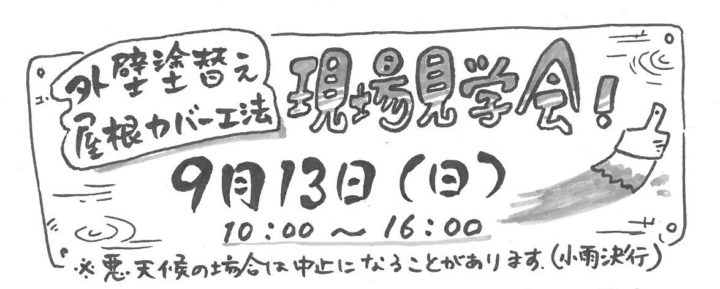 外壁塗替え
屋根カバー工法
現場見学会！
9月13日（日）
10：00～16：00
※悪天候の場合は中止になることがあります。（小雨決行）